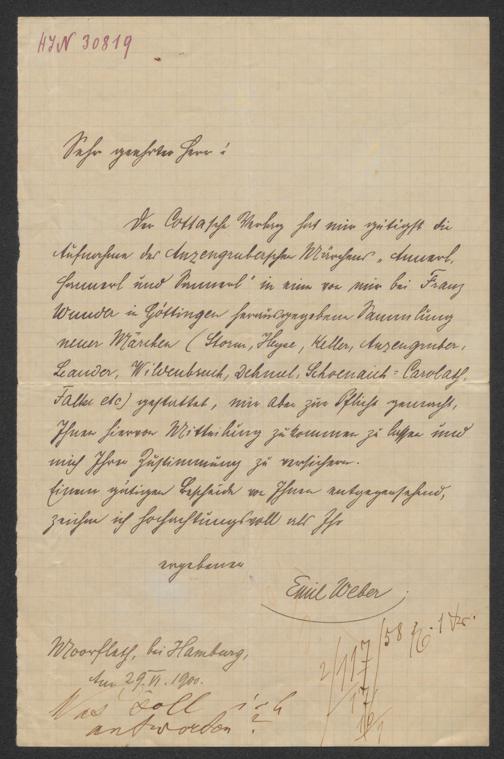 HIN 30819
Sehr geehrter Herr!
Der Cottasche Verlag hat mir gütigst die
Aufnahme des Anzengruberschen Märchens „Annerl,
Hannerl und Sannerl" in eine von mir bei Franz
Wunder in Göttingen herausgegebene Sammlung
neuer Märchen (Storm, Heyse, Keller, Anzengruber,
Leander, Wildenbruch, Dehmel, Schoenaich-Carolath,
Falke etc) gestattet, mir aber zur Pflicht gemacht,
Ihnen hiervon Mitteilung zukommen zu lassen und
mich Ihrer Zustimmung zu versichern.
Einem gütigen Bescheide von Ihnen entgegensehend,
zeichne ich hochachtungsvoll als Ihr
ergebener
Emil Weber.
Moorfleth, bei Hamburg,
Am 29. VI. 1900.
Was soll ich
antworten?
2/117/58
17